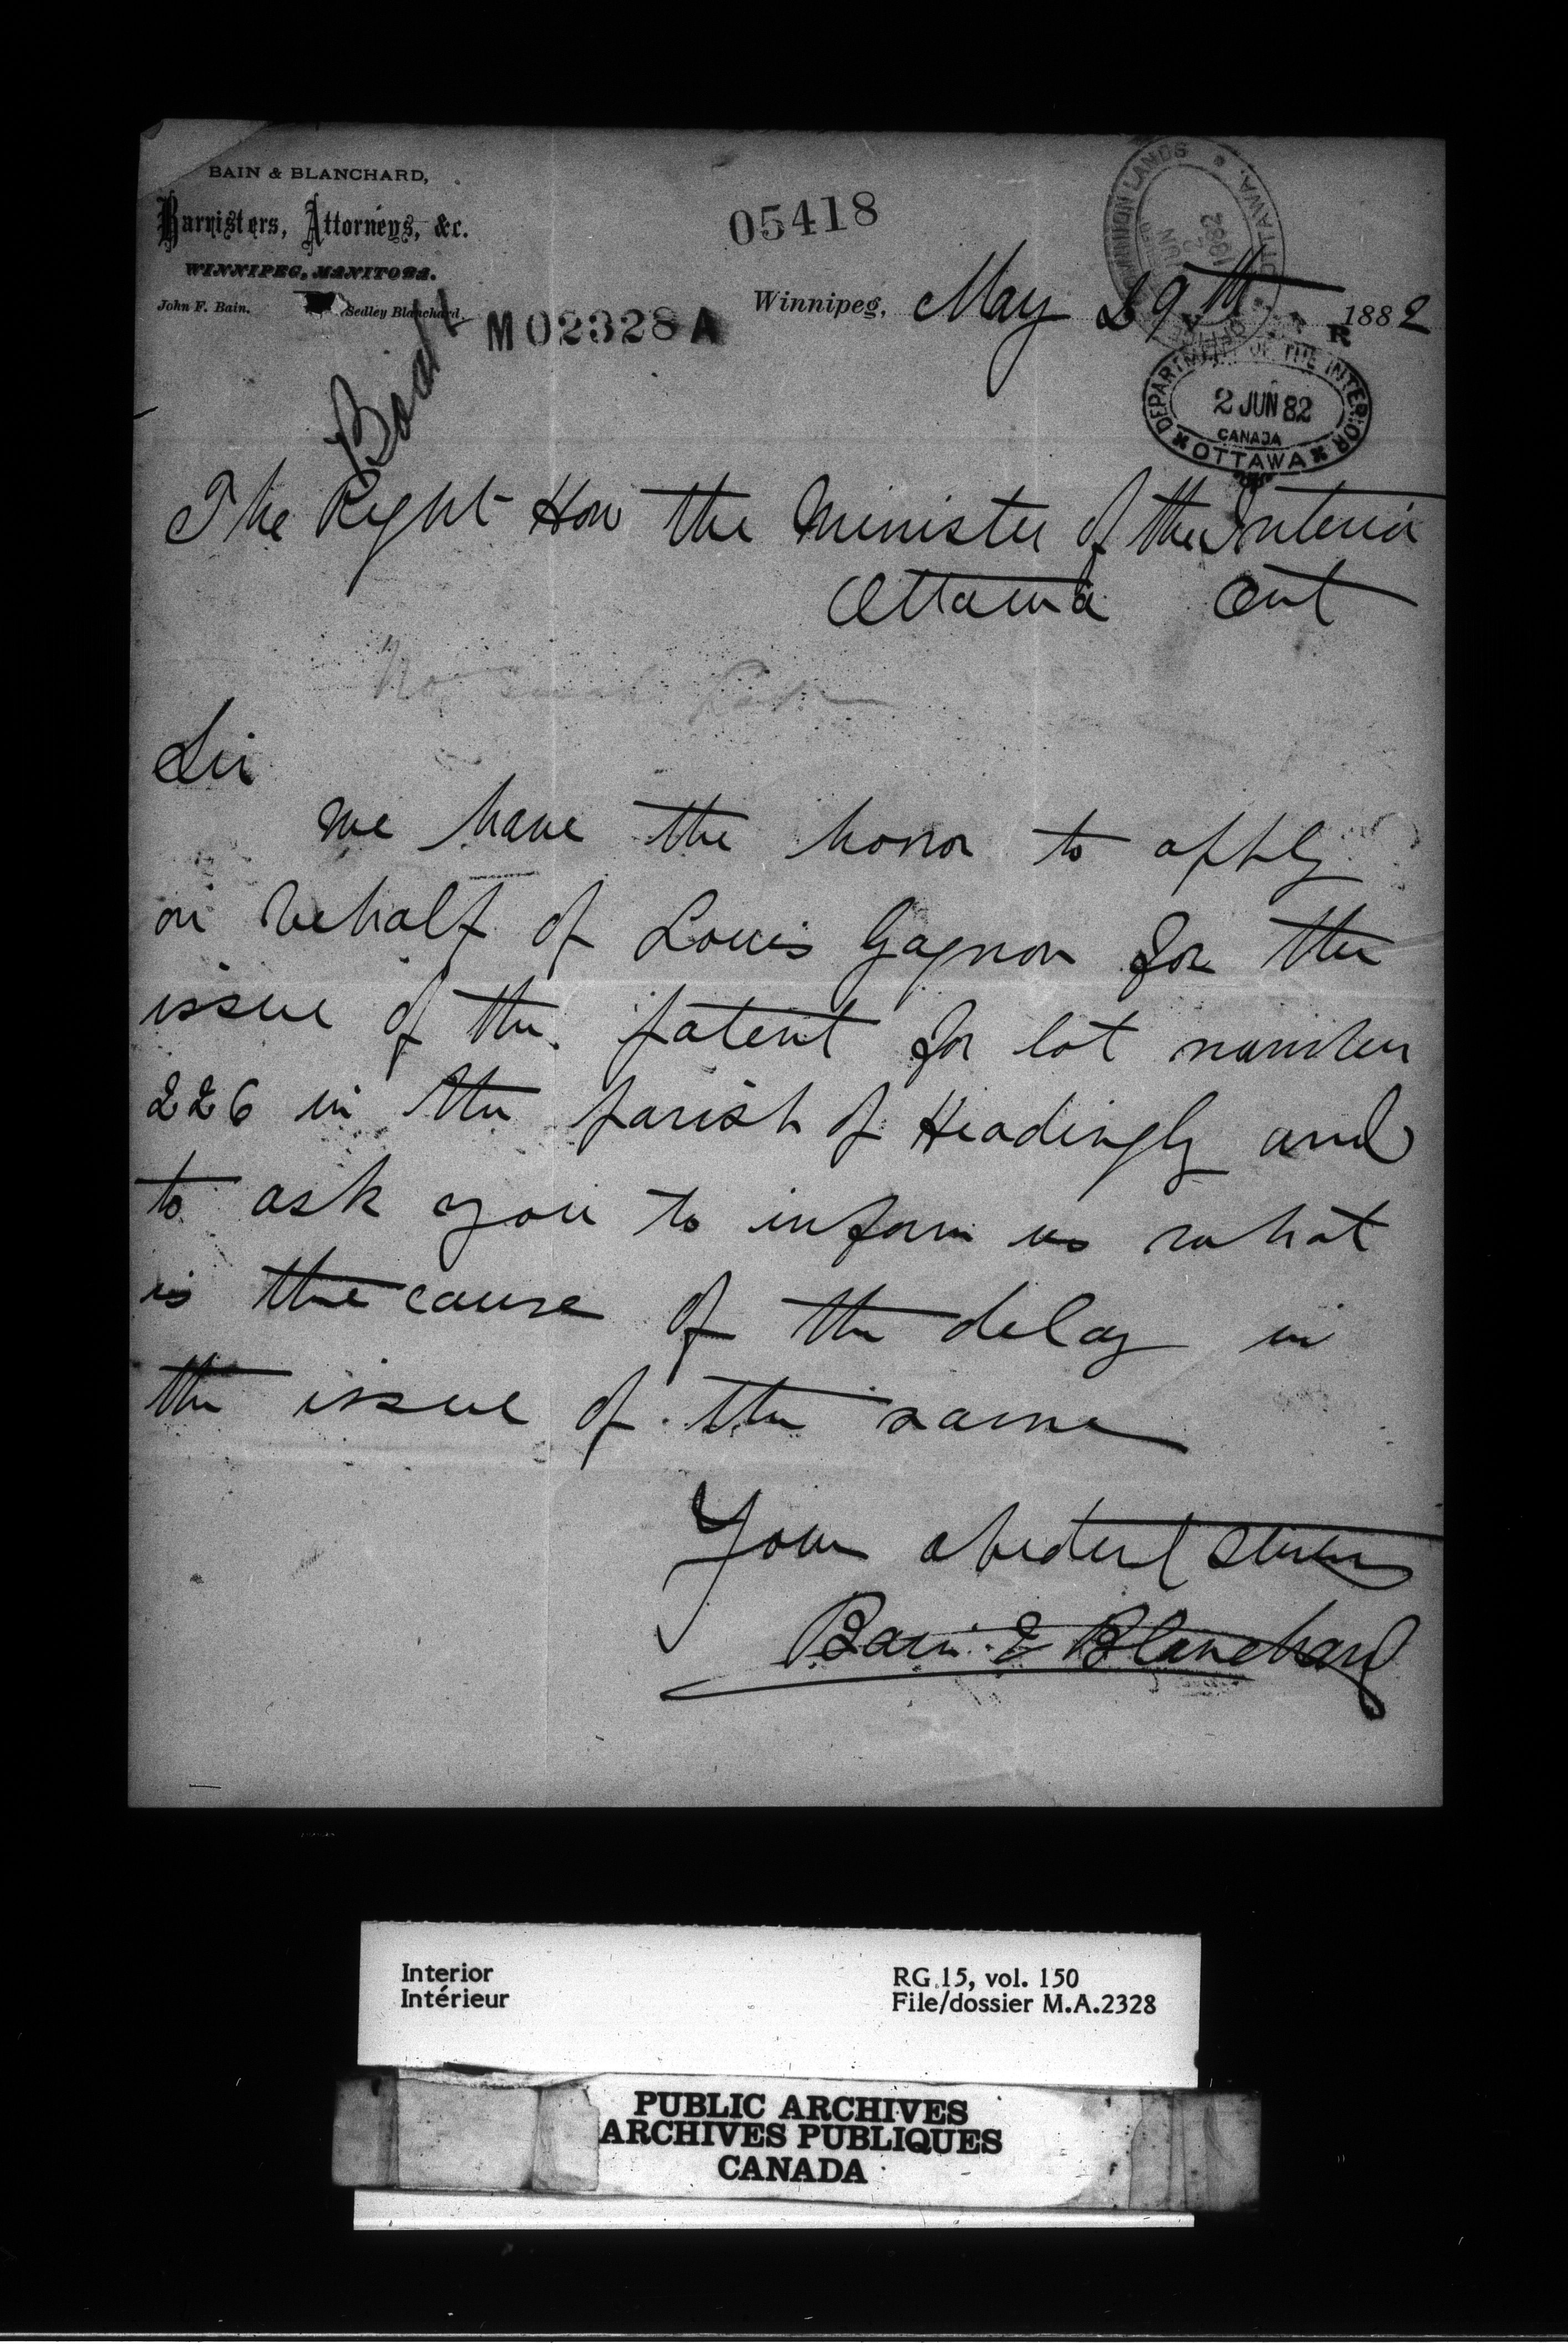 BAIN & BLANCHARD,
Barristers, Attorneys, &c.
WINNIPEG, MANITOBA.
John F. Bain. Sedley Blanchard.
05418
M02328A
DOMINION LANDS OTTAWA. JUN 2 1882
Winnipeg, May 29th 1882
R
DEPARTMENT OF THE INTERIOR
2 JUN 82
CANADA
OTTAWA
The Right Hon the Minister of the Interior
Ottawa Ont
No such
Sir
We have the honor to apply
on behalf of Louis Gagnon for the
issue of the patent for lot number
226 in the parish of Headingly and
to ask you to inform us what
is the cause of the delay in
the issue of the same
Your obedient Servants
Bain & Blanchard
Interior
Intérieur
RG 15, vol. 150
File/dossier M.A.2328
PUBLIC ARCHIVES
ARCHIVES PUBLIQUES
CANADA